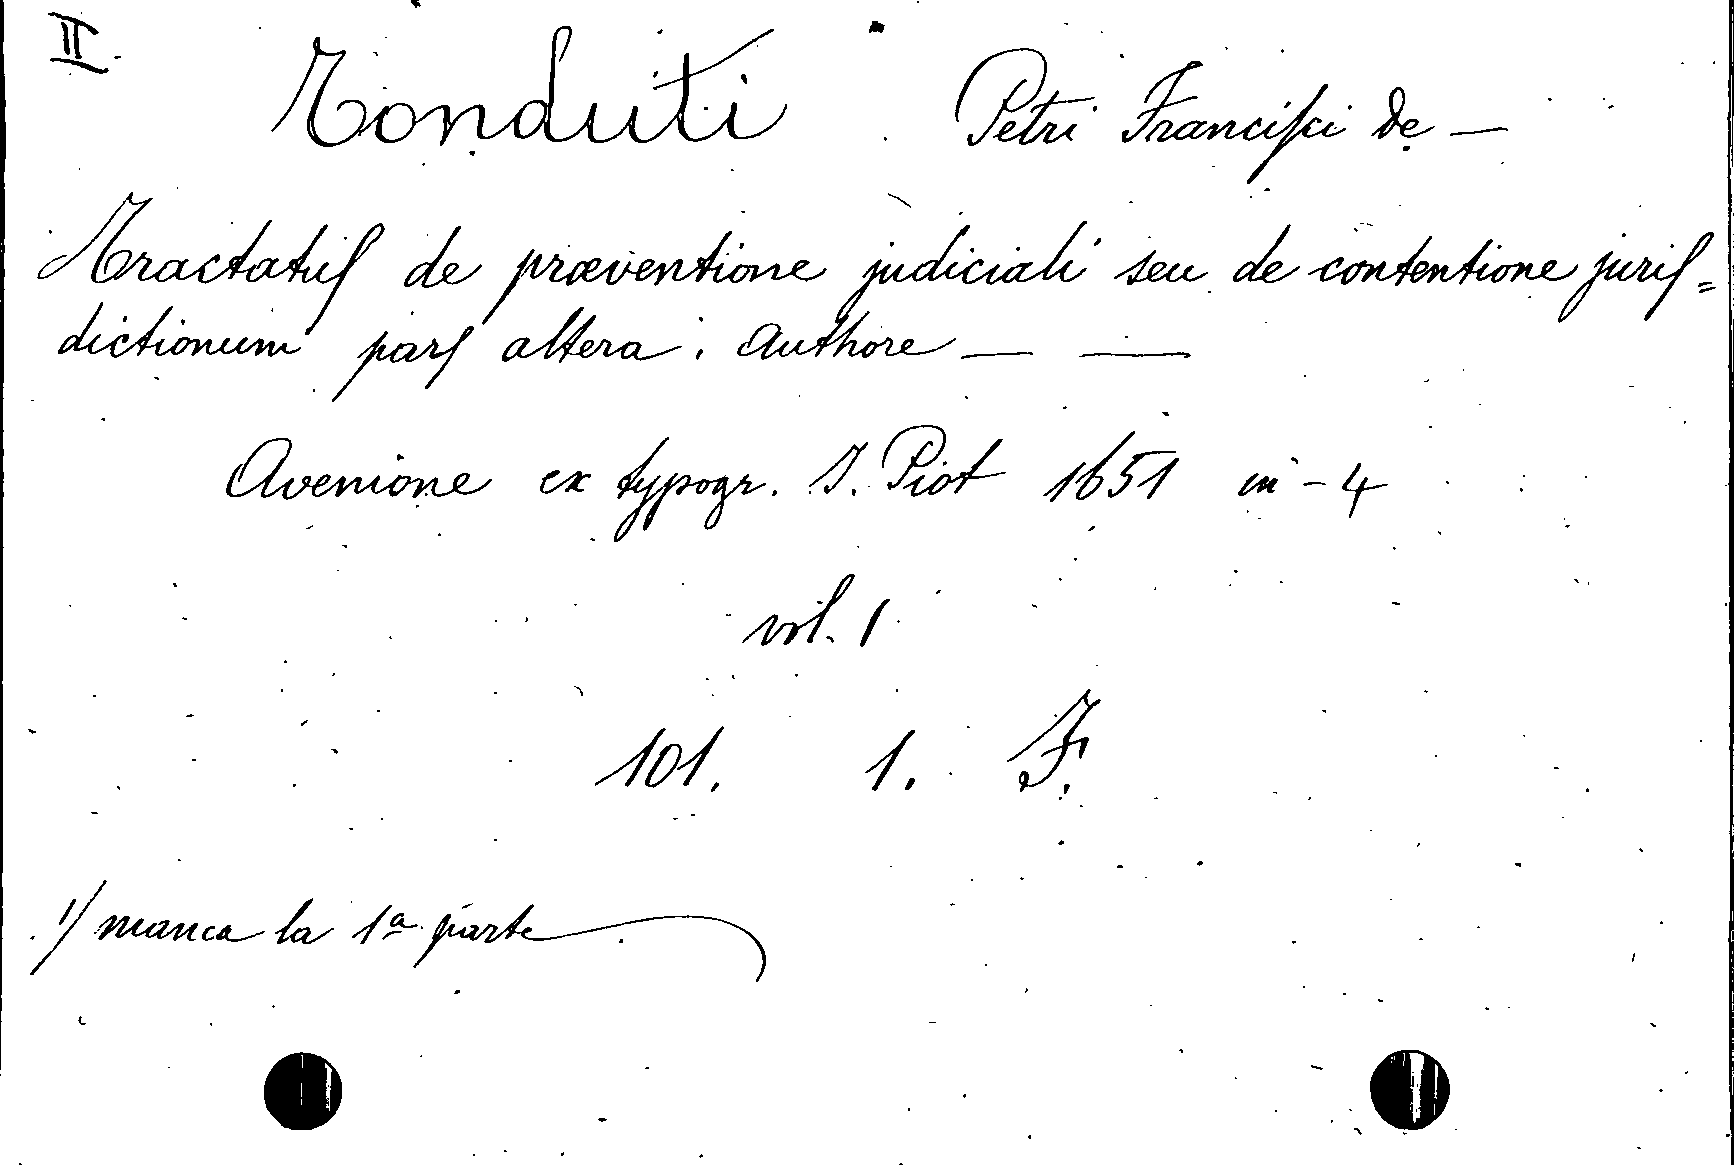 II.
Tonduti Petri Francisci de —
Tractatus de præventione judiciali seu de contentione juris=
dictionum pars altera. Authore — —
Avenione ex typogr. J. Piot 1651 in-4
vol. 1
101. 1. F.
1/ manca la 1ª parte